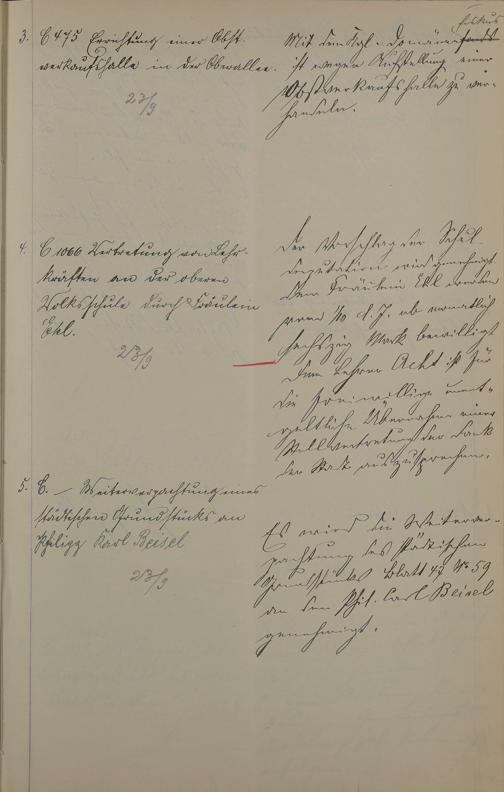 3. C 475 Errichtung einer Obst-
verkaufshalle in der Oberallee.
23/9
fiskus
Mit dem Kgl. Domänen
ist wegen Aufstellung einer
Obstverkaufshalle zu ver-
handeln.
4. C 1066 Vertretung von Lehr-
kräften an der oberen
Volksschule durch Fräulein
Ehl.
23/9
Der Vorschlag der Schul-
deputation wird genehmigt.
Dem Fräulein Ehl werden
vom 1/10 d. J. ab monatlich
sechszig Mark bewilligt
Dem Lehrer Acht ist für
die freiwillige unent-
geltliche Übernahme einer
Stellvertretung der Dank
der Stadt auszusprechen.
5. C. – Weiterverpachtung eines
städtischen Grundstücks an
Philipp Karl Beisel
23/9
Es wird die Weiterver-
pachtung des städtischen
Grundstücks Blatt 47 No 59
an den Phil. Carl Beisel
genehmigt.